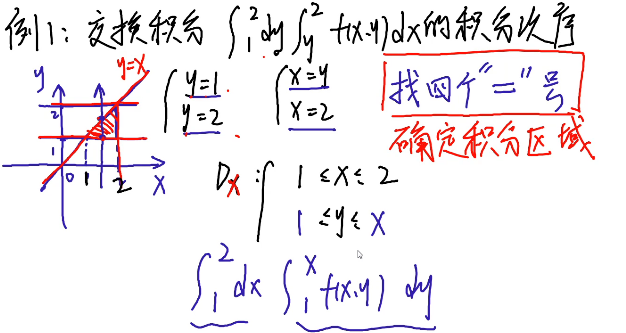 例1: 交换积分 ∫₁² dy ∫_y² f(x,y) dx 的积分次序
y
y=x
{ y=1
y=2
{ x=y
x=2
找四个"="号
确定积分区域
2
1
0 1 2 x
Dx: { 1 ≤ x ≤ 2
1 ≤ y ≤ x
∫₁² dx ∫₁ˣ f(x,y) dy